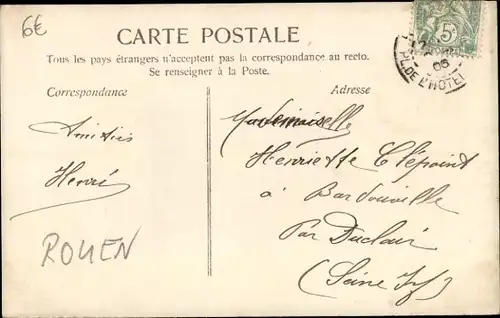 6€
CARTE POSTALE
Tous les pays étrangers n'acceptent pas la correspondance au recto.
Se renseigner à la Poste.
Correspondance
Adresse
5c
06
PL. DE L'HOTEL
Amitiés
Henri
ROUEN
Mademoiselle
Henriette Clépoint
à Bardouville
Par Duclair
(Seine Inf)